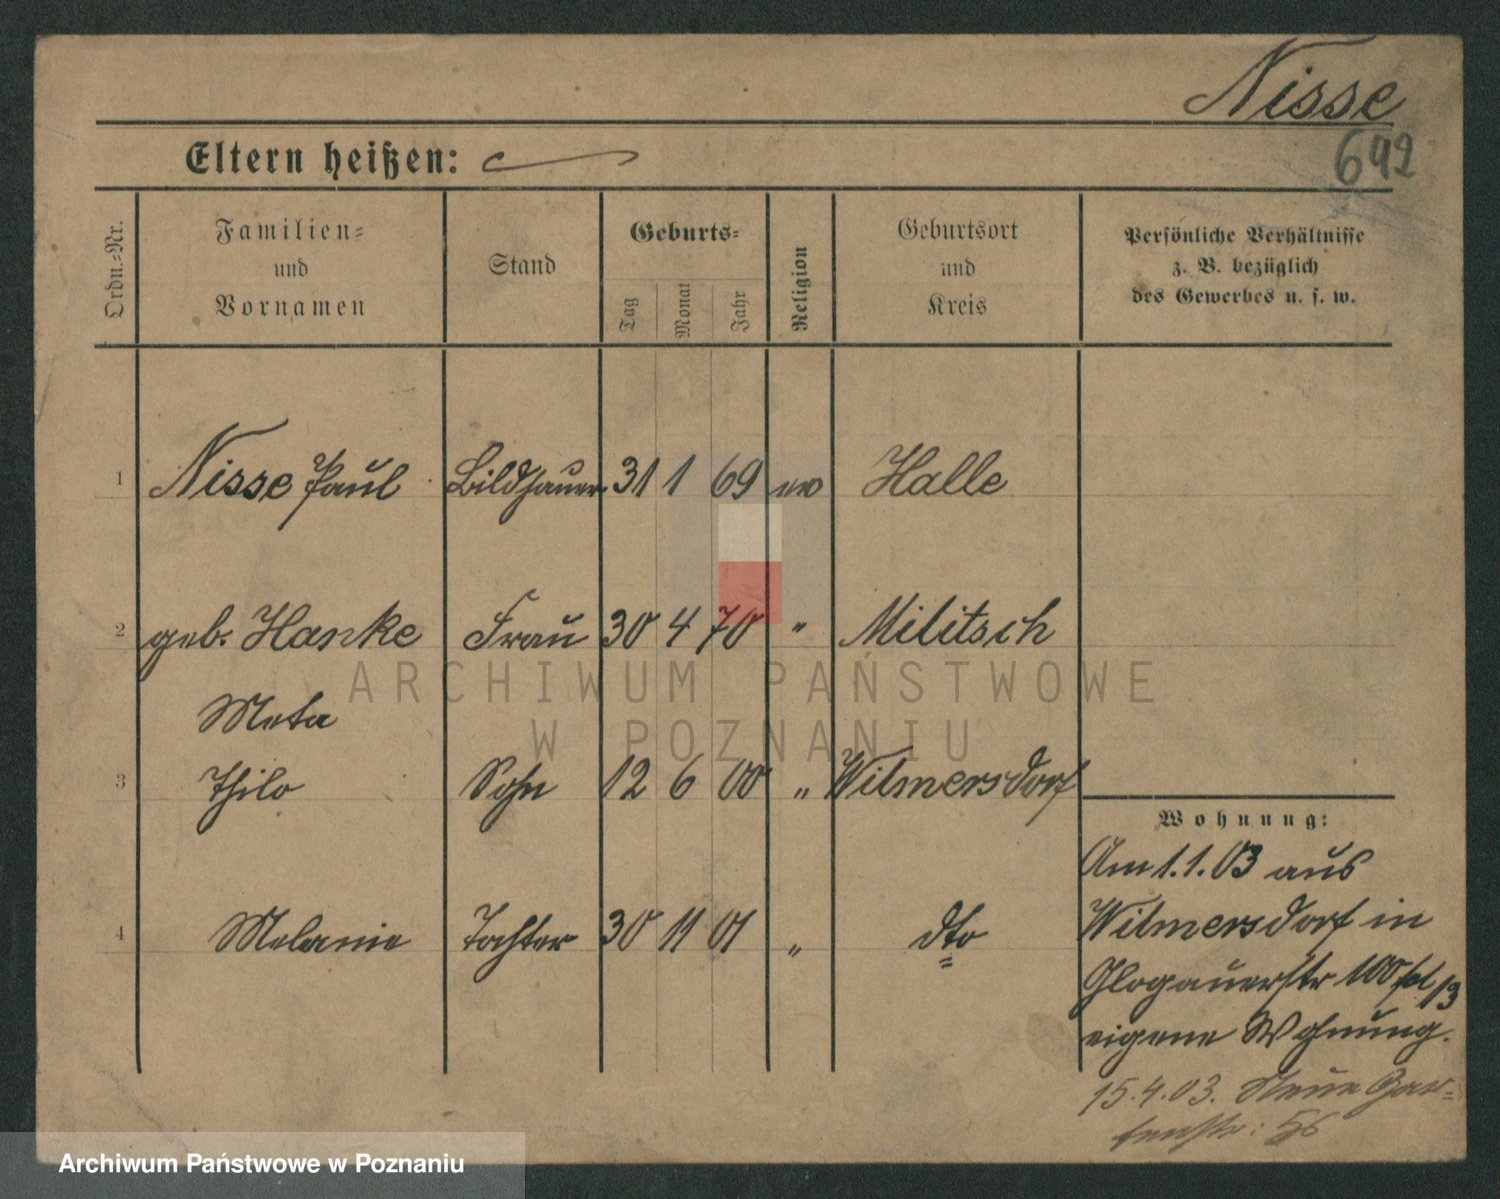 Nisse
642
Eltern heißen:
Ordn.-Nr.
Familien-
und
Vornamen
Stand
Geburts-
Tag
Monat
Jahr
Religion
Geburtsort
und
Kreis
Persönliche Verhältnisse
z. B. bezüglich
des Gewerbes u. s. w.
1 Nisse Paul Bildhauer 31 1 69 ev Halle
2 geb. Hanke Frau 30 4 70 " Militsch
Meta
3 Thilo Sohn 12 6 00 " Wilmersdorf
4 Melanie Tochter 30 11 01 " dto
Wohnung:
Am 1.1.03 aus
Wilmersdorf in
Glogauerstr 100
eigene Wohnung.
15.4.03. Neue Gar-
tenstr:
ARCHIWUM PAŃSTWOWE
W POZNANIU
Archiwum Państwowe w Poznaniu